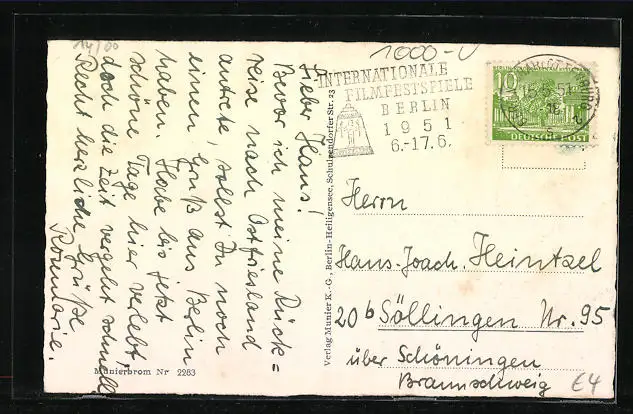 14/00
1000-V
Lieber Hans!
Bevor ich meine Rück=
reise nach Ostfriesland
antrete, sollst Du noch
einen Gruß aus Berlin
haben. Habe bis jetzt
schöne Tage hier verlebt,
doch die Zeit vergeht schnell
Recht herzliche Grüße
Rosemarie.
Munierbrom Nr 2263
Verlag Munier K.-G., Berlin-Heiligensee, Schulzendorfer Str. 23
INTERNATIONALE
FILMFESTSPIELE
BERLIN
1951
6.-17.6.
10
DEUTSCHE POST
Herrn
Hans-Joach. Heintzel
20b Söllingen Nr. 95
über Schöningen
Braunschweig
€4